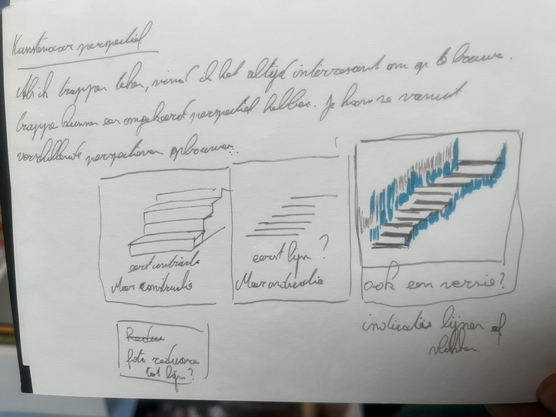 Kunstenaar perspectief
Als ik trappen teken, vind ik het altijd interessant om op te bouwen.
trappen kunnen een omgekeerd perspectief hebben. Je kan ze vanuit
verschillende perspectieven opbouwen.
eerst
Meer constructie
eerst lijn?
Meer indicatie
ook een versie?
indicatie lijnen of
vlakken
foto reduceren
tot lijn?